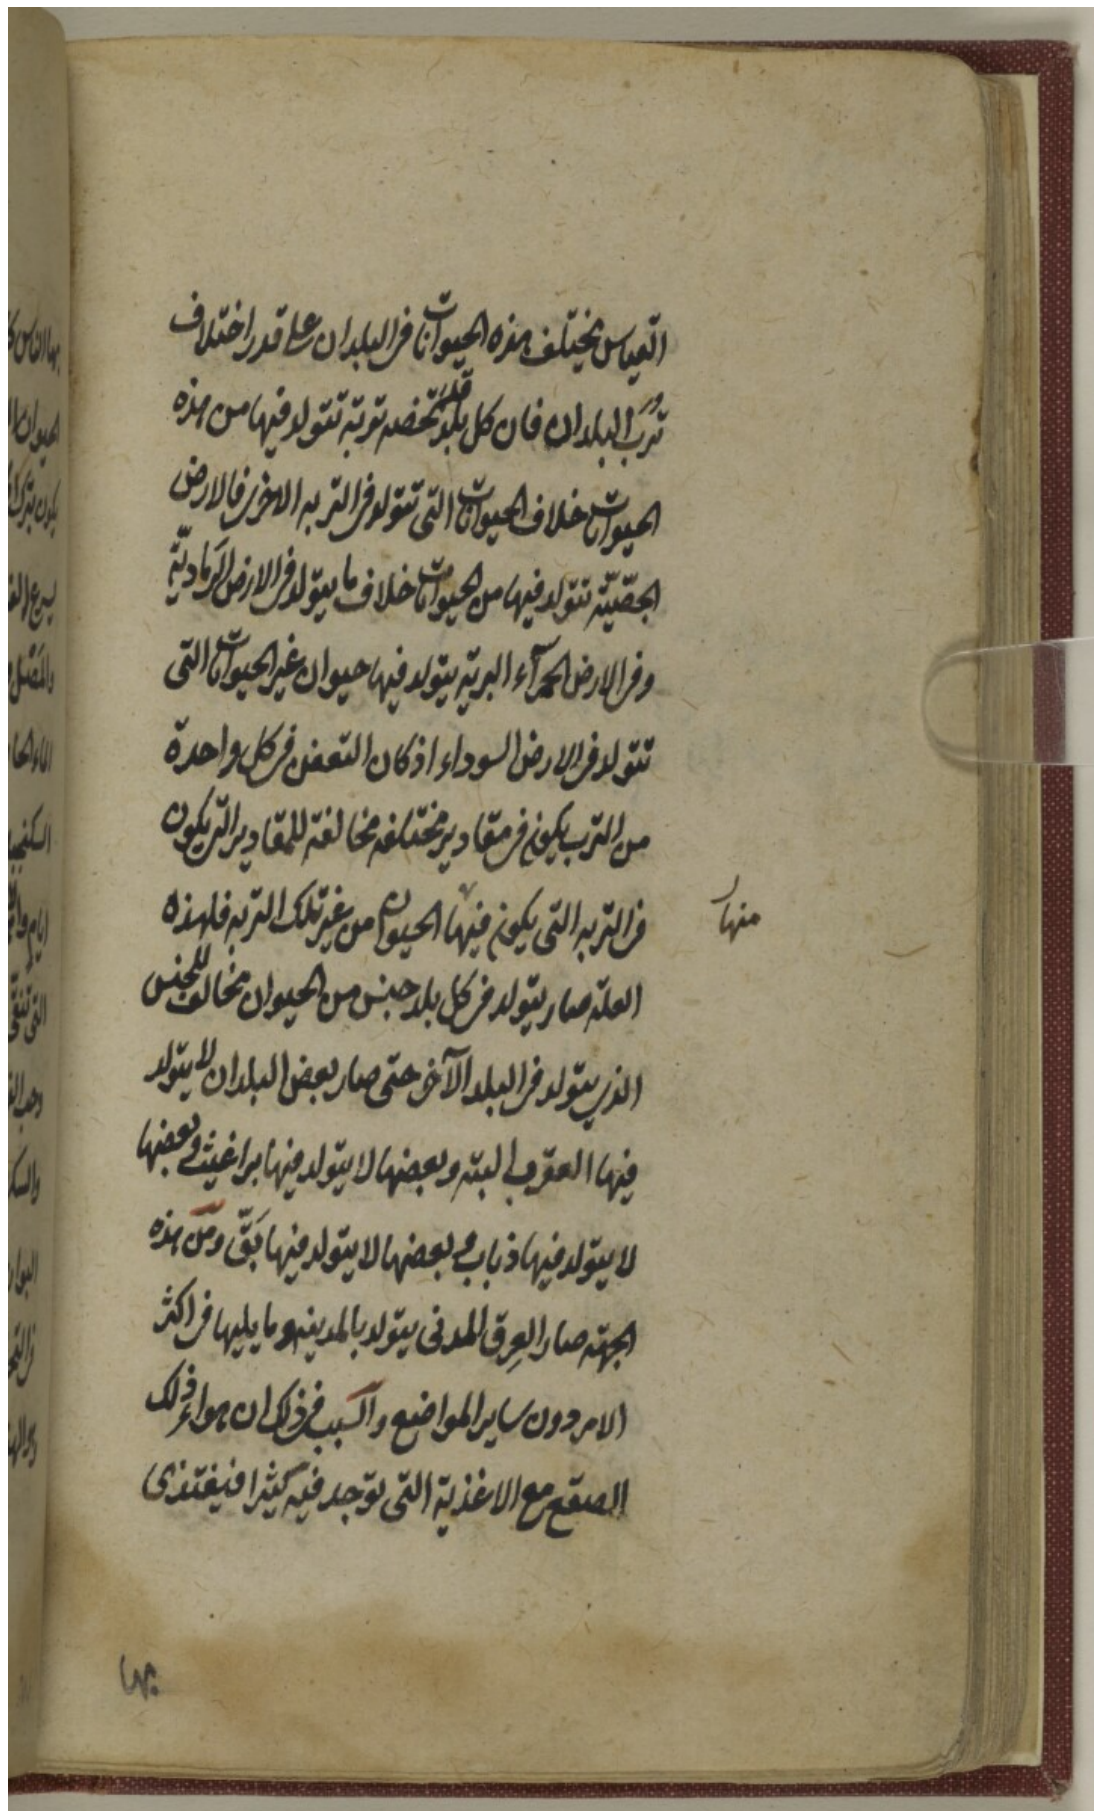 القياس يختلف هذه الحيوانات في البلدان على قدر اختلاف
ترب البلدان فان كل بلد تخصه تربة تتولد فيها من هذه
الحيوانات خلاف الحيوانات التي تتولد في التربه الاخرى فالارض
الجصّيّة تتولد فيها من الحيوانات خلاف ما يتولد في الارض الرماديّة
وفي الارض الحمرآء البرية يتولد فيها حيوان غير الحيوانات التي
تتولد في الارض السوداء اذ كان التعفن في كل واحدة
من الترب يكون في مقادير مختلفه مخالفة للمقادير التي يكون
في التربه التي يكون فيها الحيوان من غير تلك التربه فلهذه
منها
العلة صار يتولد في كل بلد جنس من الحيوان مخالف للجنس
الذي يتولد في البلد الآخر حتى صار بعض البلدان لا يتولد
فيها العقرب البتة وبعضها لا يتولد فيها براغيث وبعضها
لا يتولد فيها ذباب وبعضها لا يتولد فيها بَقّ ومن هذه
الجهة صار العِرق المدني يتولد بالمدينه وما يليها في اكثر
الامر دون ساير المواضع والسبب في ذلك ان هواء ذلك
الصقع مع الاغذية التي توجد فيه كثيرا فيغتذى
بها